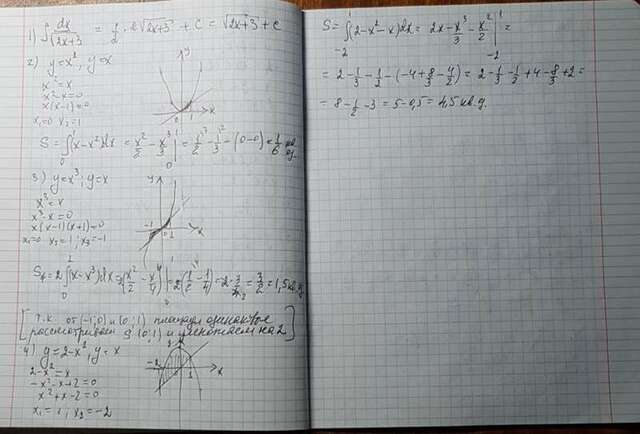 1) ∫ dx/√(2x+3) = 1/2 · 2√(2x+3) + C = √(2x+3) + C
2) y=x², y=x
x²=x
x²-x=0
x(x-1)=0
x₁=0 x₂=1
S = ∫₀¹(x-x²)dx = x²/2 - x³/3 |₀¹ = 1²/2 - 1³/3 - (0-0) = 1/6 кв. ед.
3) y=x³; y=x
x³=x
x³-x=0
x(x-1)(x+1)=0
x₁=0 x₂=1; x₃=-1
= 2∫₀¹(x-x³)dx = 2(x²/2 - x⁴/4)|₀¹ = 2(1/2 - 1/4) = = 3/2 = 1,5 кв.
[т.к от (-1;0) и (0;1) площади одинаковы
рассматриваем S (0;1) и умножаем на 2]
4) y=2-x², y=x
2-x²=x
-x²-x+2=0
x²+x-2=0
x₁=1; x₂=-2
S = ∫₋₂¹(2-x²-x)dx = 2x - x³/3 - x²/2 |₋₂¹ =
= 2 - 1/3 - 1/2 - (-4 + 8/3 - 4/2) = 2 - 1/3 - 1/2 + 4 - 8/3 + 2 =
= 8 - 1/2 - 3 = 5 - 0,5 = 4,5 кв.д.